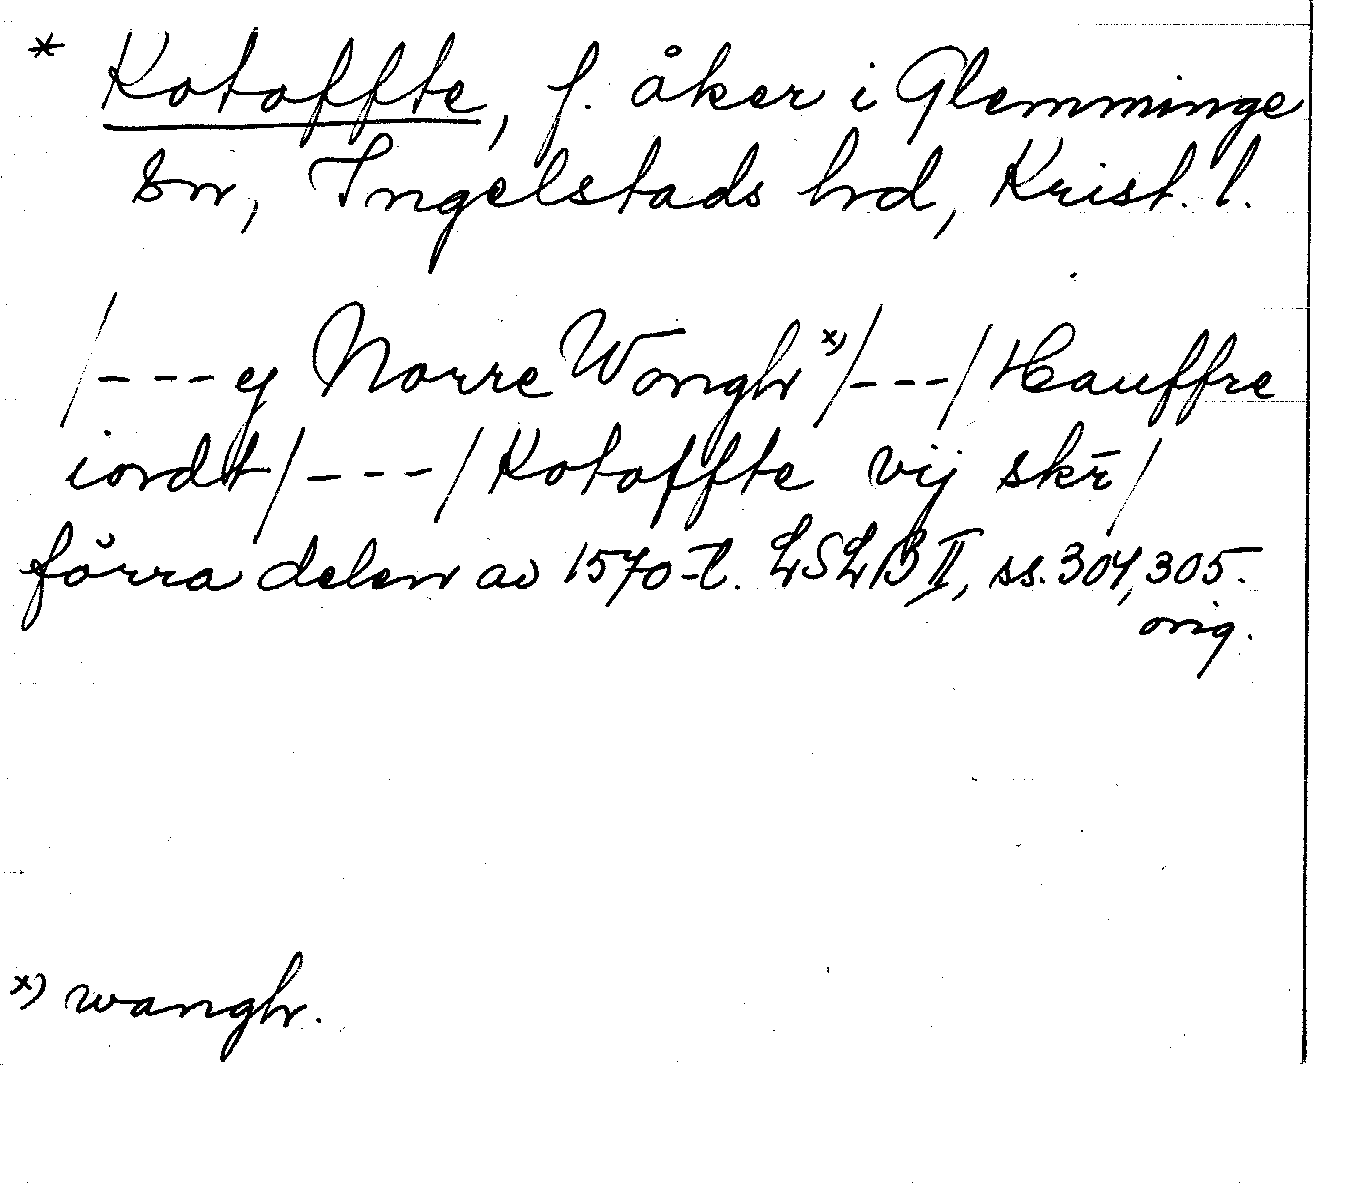 * Kotoffte, f. åker i Glemminge
sn, Ingelstads hd, Krist. l.
/---y Norre Wongh x)/---/Hauffre
iordt/---/Kotoffte vij skr̄/
förra delen av 1570-t. LSLB II, ss. 304, 305.
orig.
x) wangh.